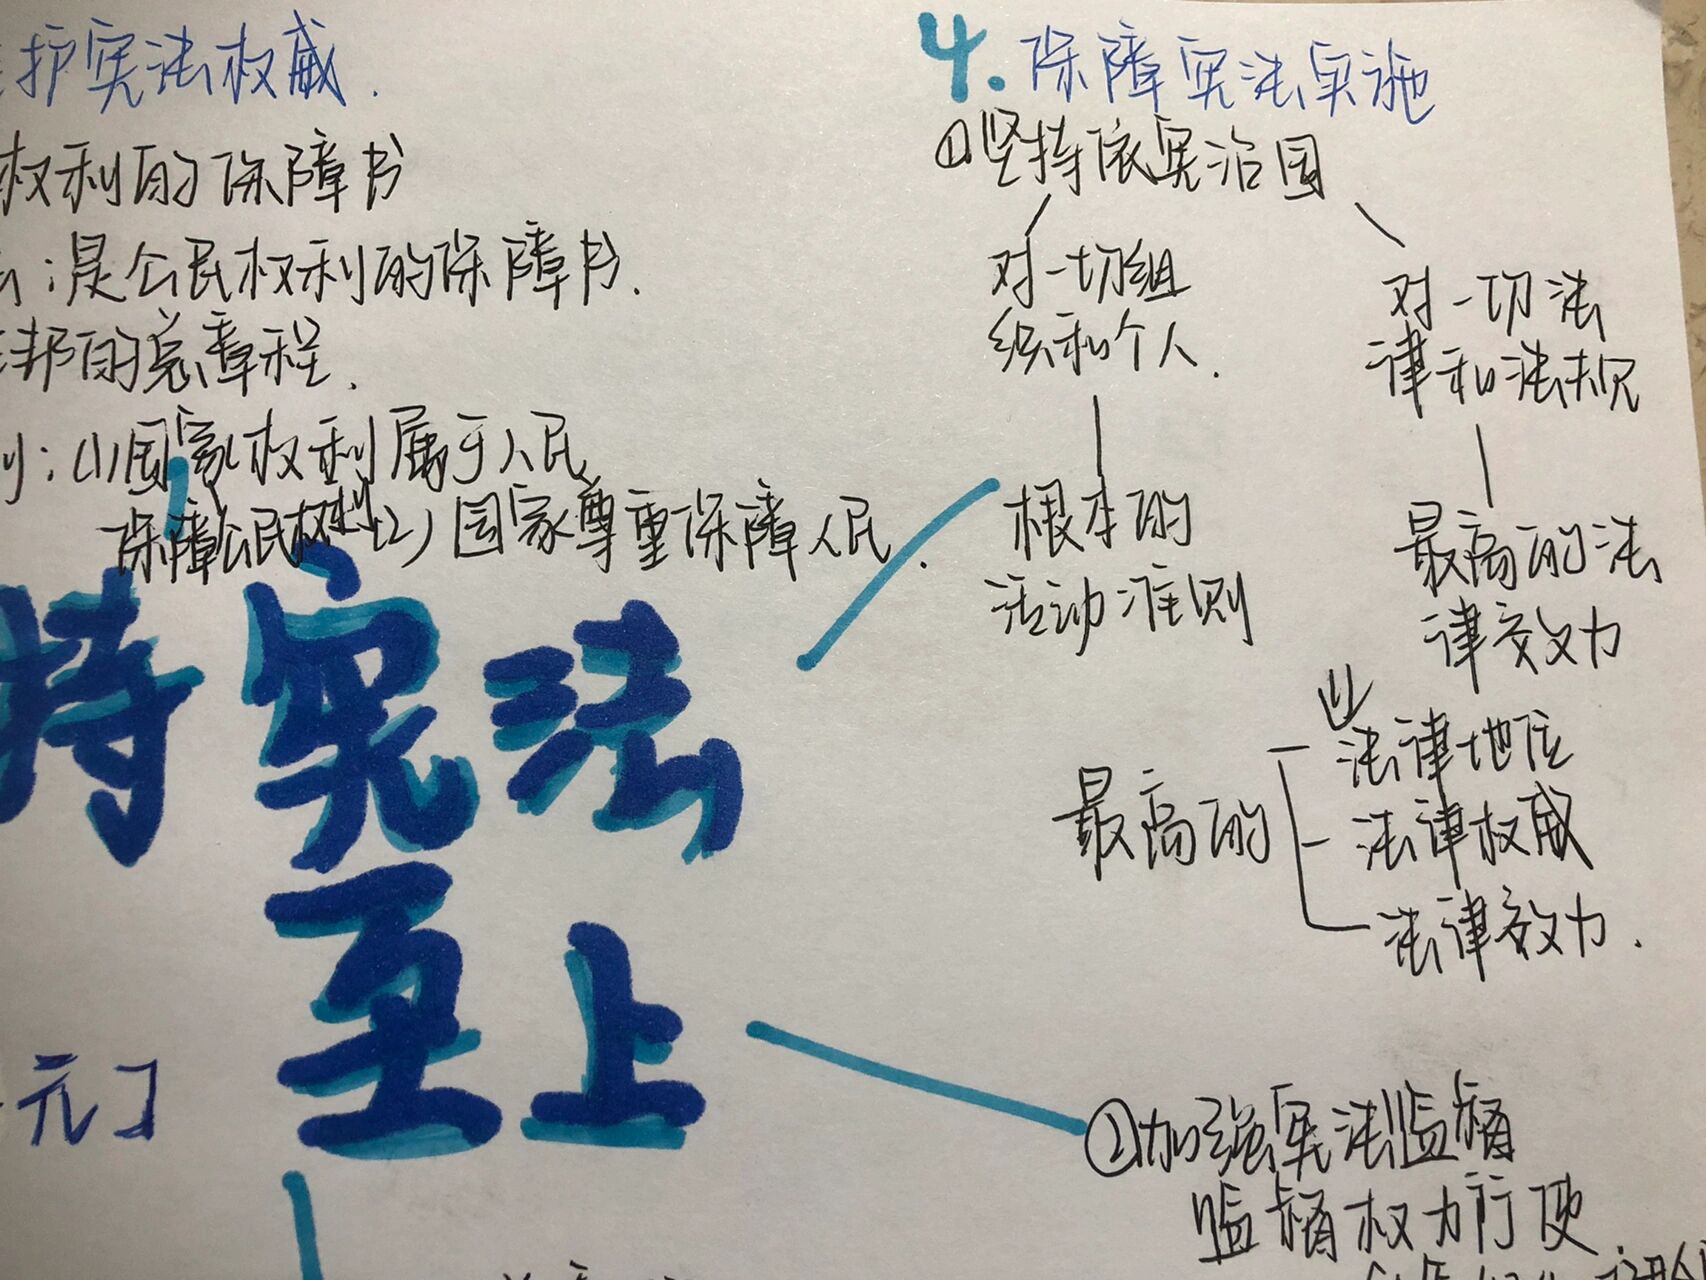 护宪法权威.
权利的保障书
:是公民权利的保障书.
邦的总章程.
:(1)国家权利属于人民
保障公民权利(2)国家尊重保障人民.
持宪法
至上
元】
4.保障宪法实施
①坚持依宪治国
对一切组
织和个人.
根本的
活动准则
对一切法
律和法规
最高的法
律效力
最高的
法律地位
法律权威
法律效力.
②加强宪法监督
监督权力行使